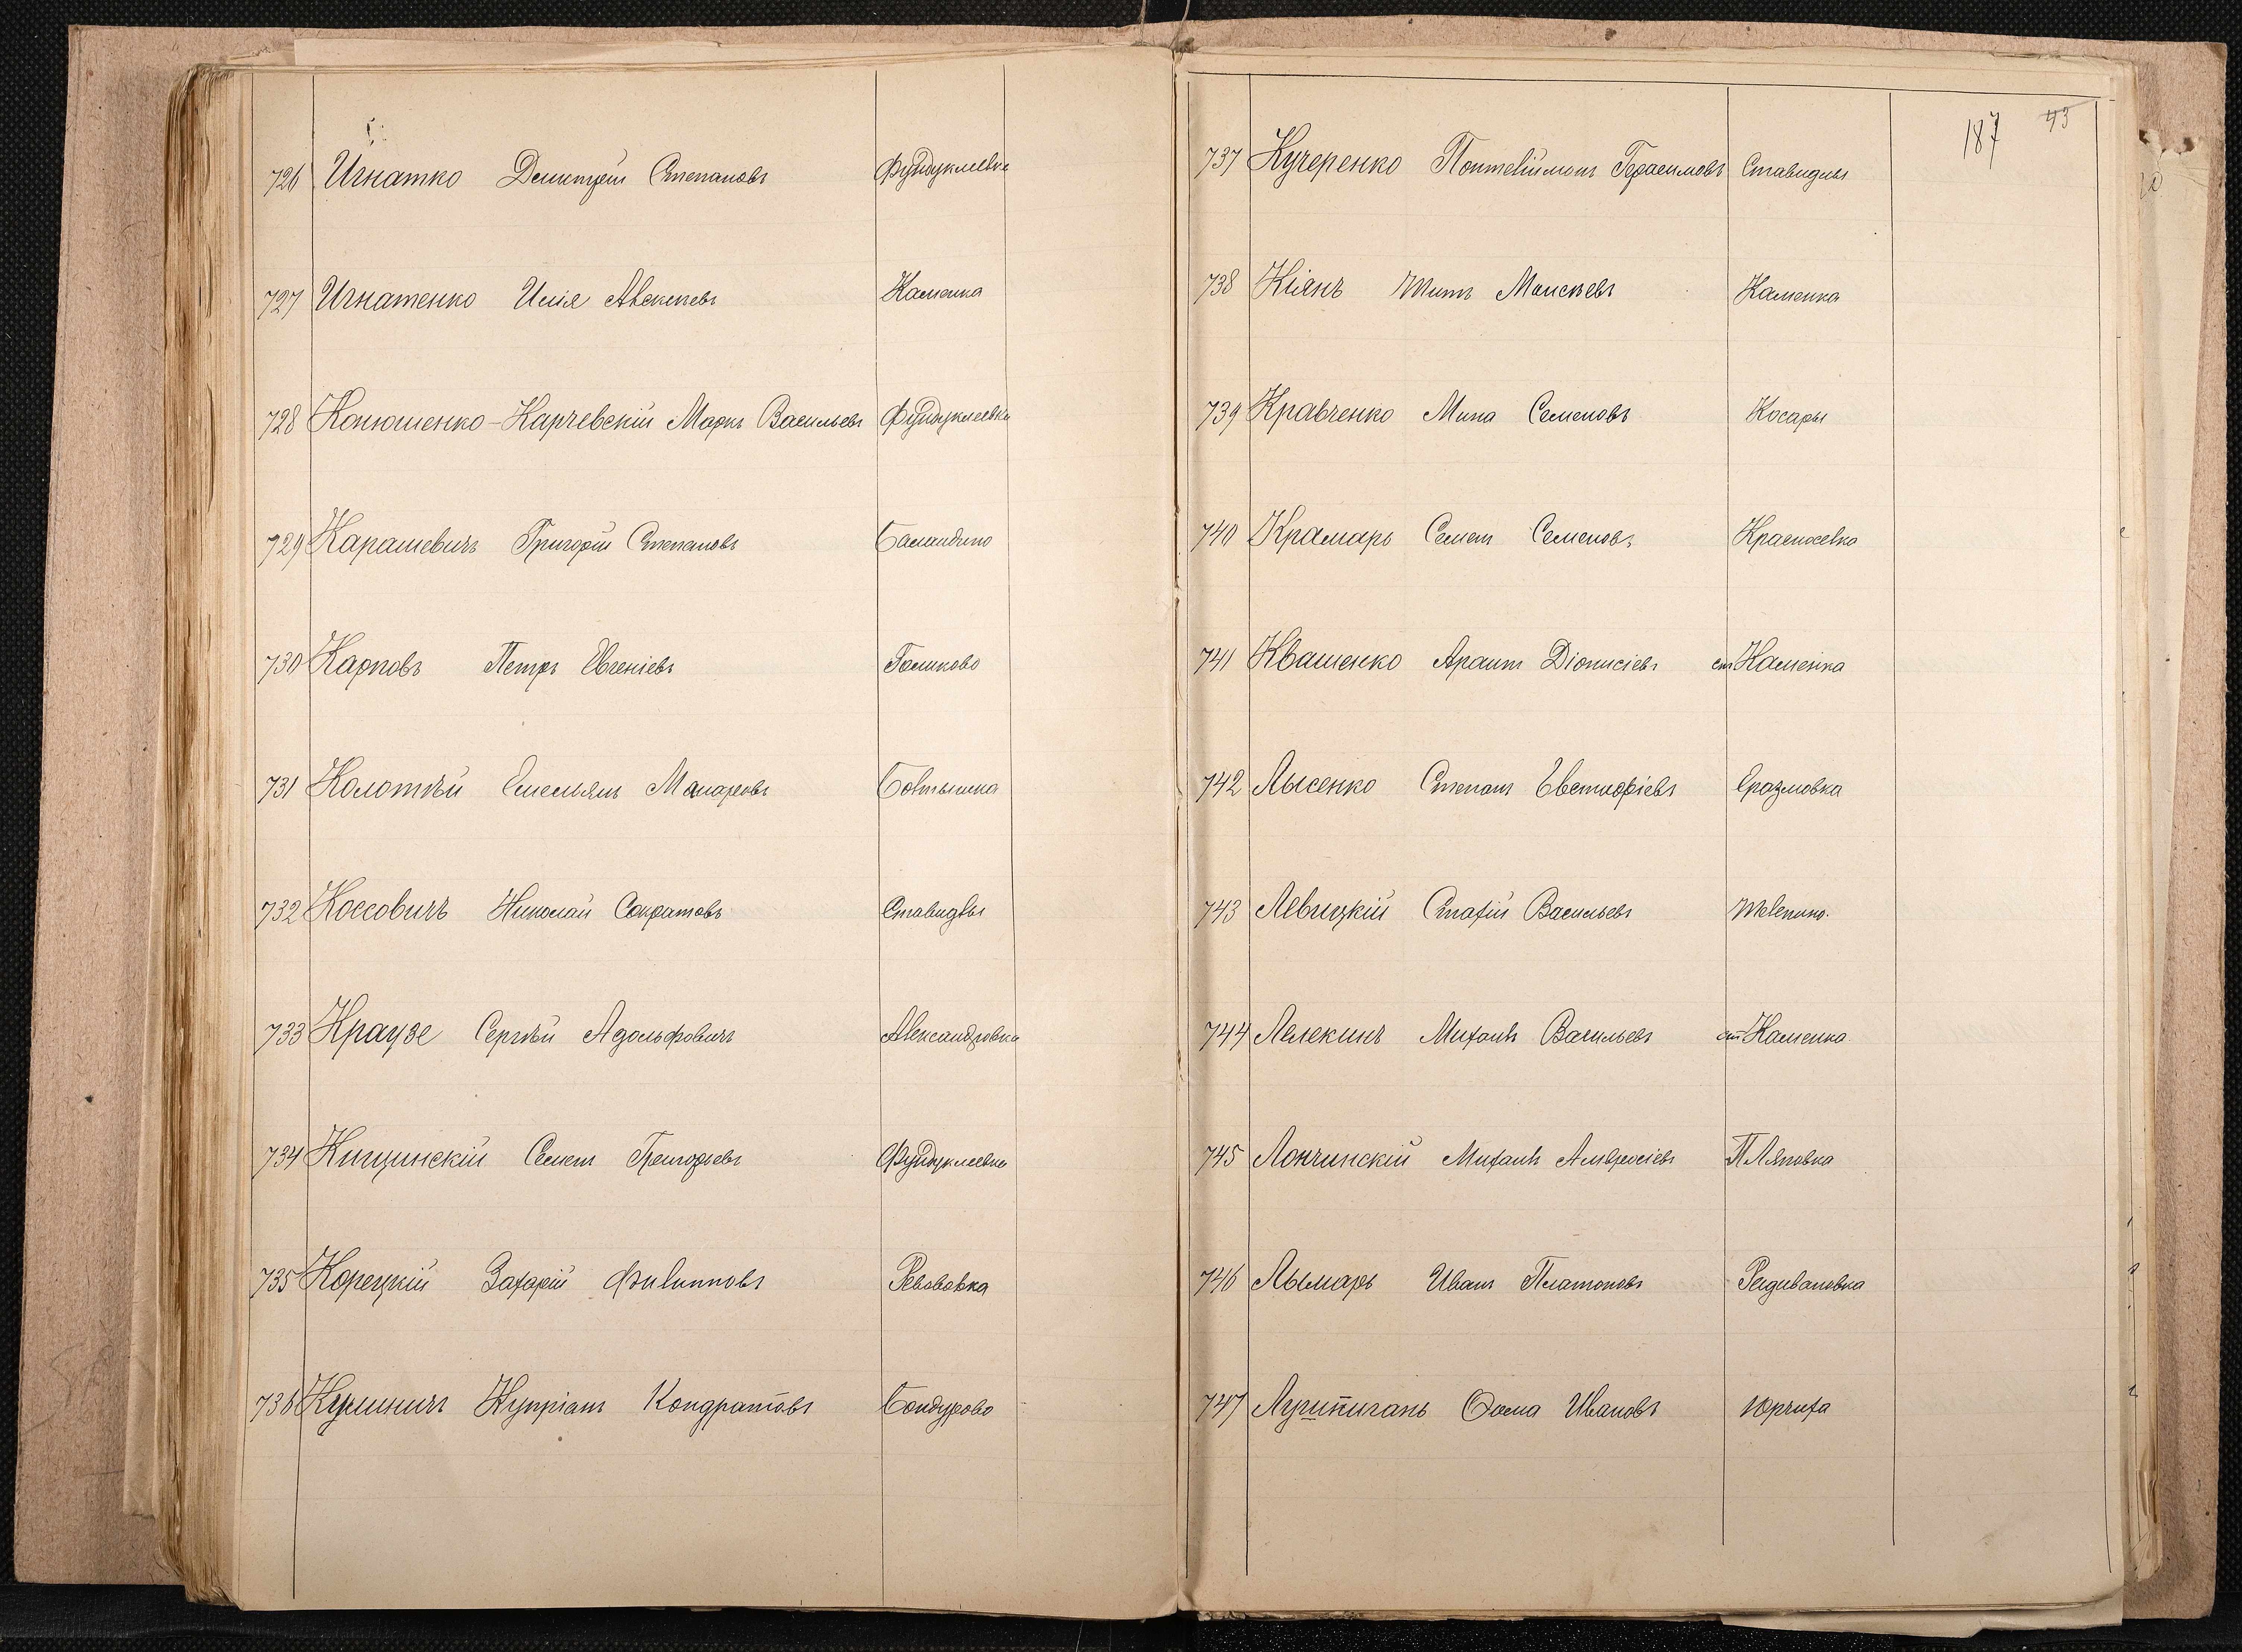 726 Игнатко Димитрій Степановъ Фундуклеевка
727 Игнатенко Илія Алексѣевъ Каменка
728 Конюшенко-Карчевскій Маркъ Васильевъ Фундуклеевка
729 Карашевичъ Григорій Степановъ Баландино
730 Карповъ Петръ Евгеніевъ Голиково
731 Колотѣй Емельянъ Макаровъ Болтышка
732 Коссовичъ Николай Сократовъ Ставидлы
733 Краузе Сергѣй Адольфовичъ Александровка
734 Кищинскій Семенъ Григорьевъ Фундуклеевка
735 Корецкій Захарій Филипповъ Ревовка
736 Купріанъ Кондратовъ Бондурово
187 43
737 Кучеренко Пантелиимонъ Герасимовъ Ставидлы
738 Кіянъ Титъ Моисѣевъ Каменка
739 Кравченко Мина Семеновъ Косары
740 Крамарь Семенъ Семеновъ Красноселка
741 Квашенко Діонисіевъ ст Каменка
742 Лысенко Степанъ Евстафіевъ Еразмовка
743 Левицкій Стахій Васильевъ Телепино.
744 Лелекинъ Михаилъ Васильевъ ст Каменка.
745 Лончинскій Михаилъ Амвросіевъ П Ляповка
746 Лымарь Иванъ Платоновъ Радивановка
747 Ѳома Ивановъ Юрчиха